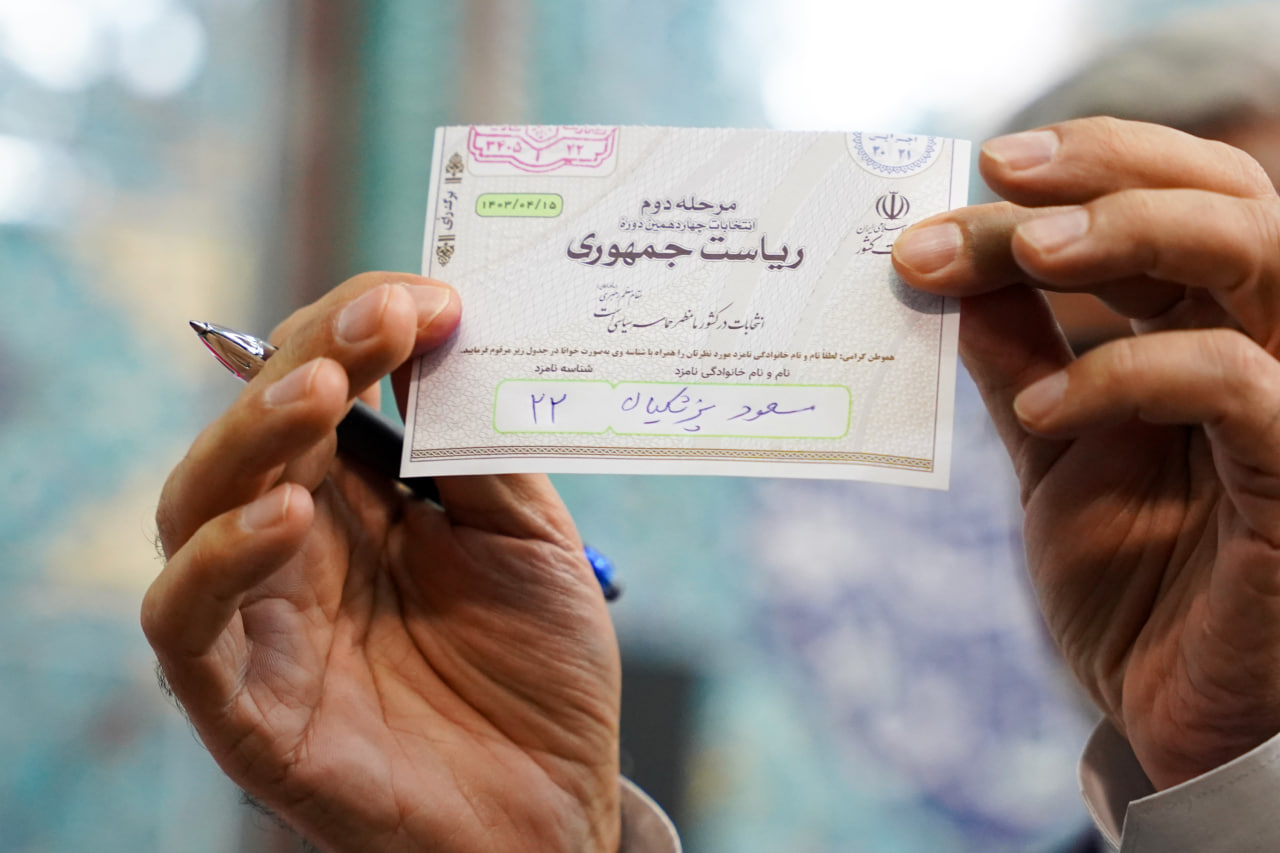 ۲۲ ۳۴۰۵
۲۰ ۲۱
برگ رای
۱۴۰۳/۰۴/۱۵
مرحله دوم
انتخابات چهاردهمین دوره
ریاست جمهوری
اسلامی ایران
کشور
مقام معظم رهبری
انتخابات در کشور ما مظهر حماسه سیاسی است
هموطن گرامی: لطفا نام و نام خانوادگی نامزد مورد نظرتان را همراه با شناسه وی به‌صورت خوانا در جدول زیر مرقوم فرمایید.
نام و نام خانوادگی نامزد شناسه نامزد
مسعود پزشکیان ۲۲